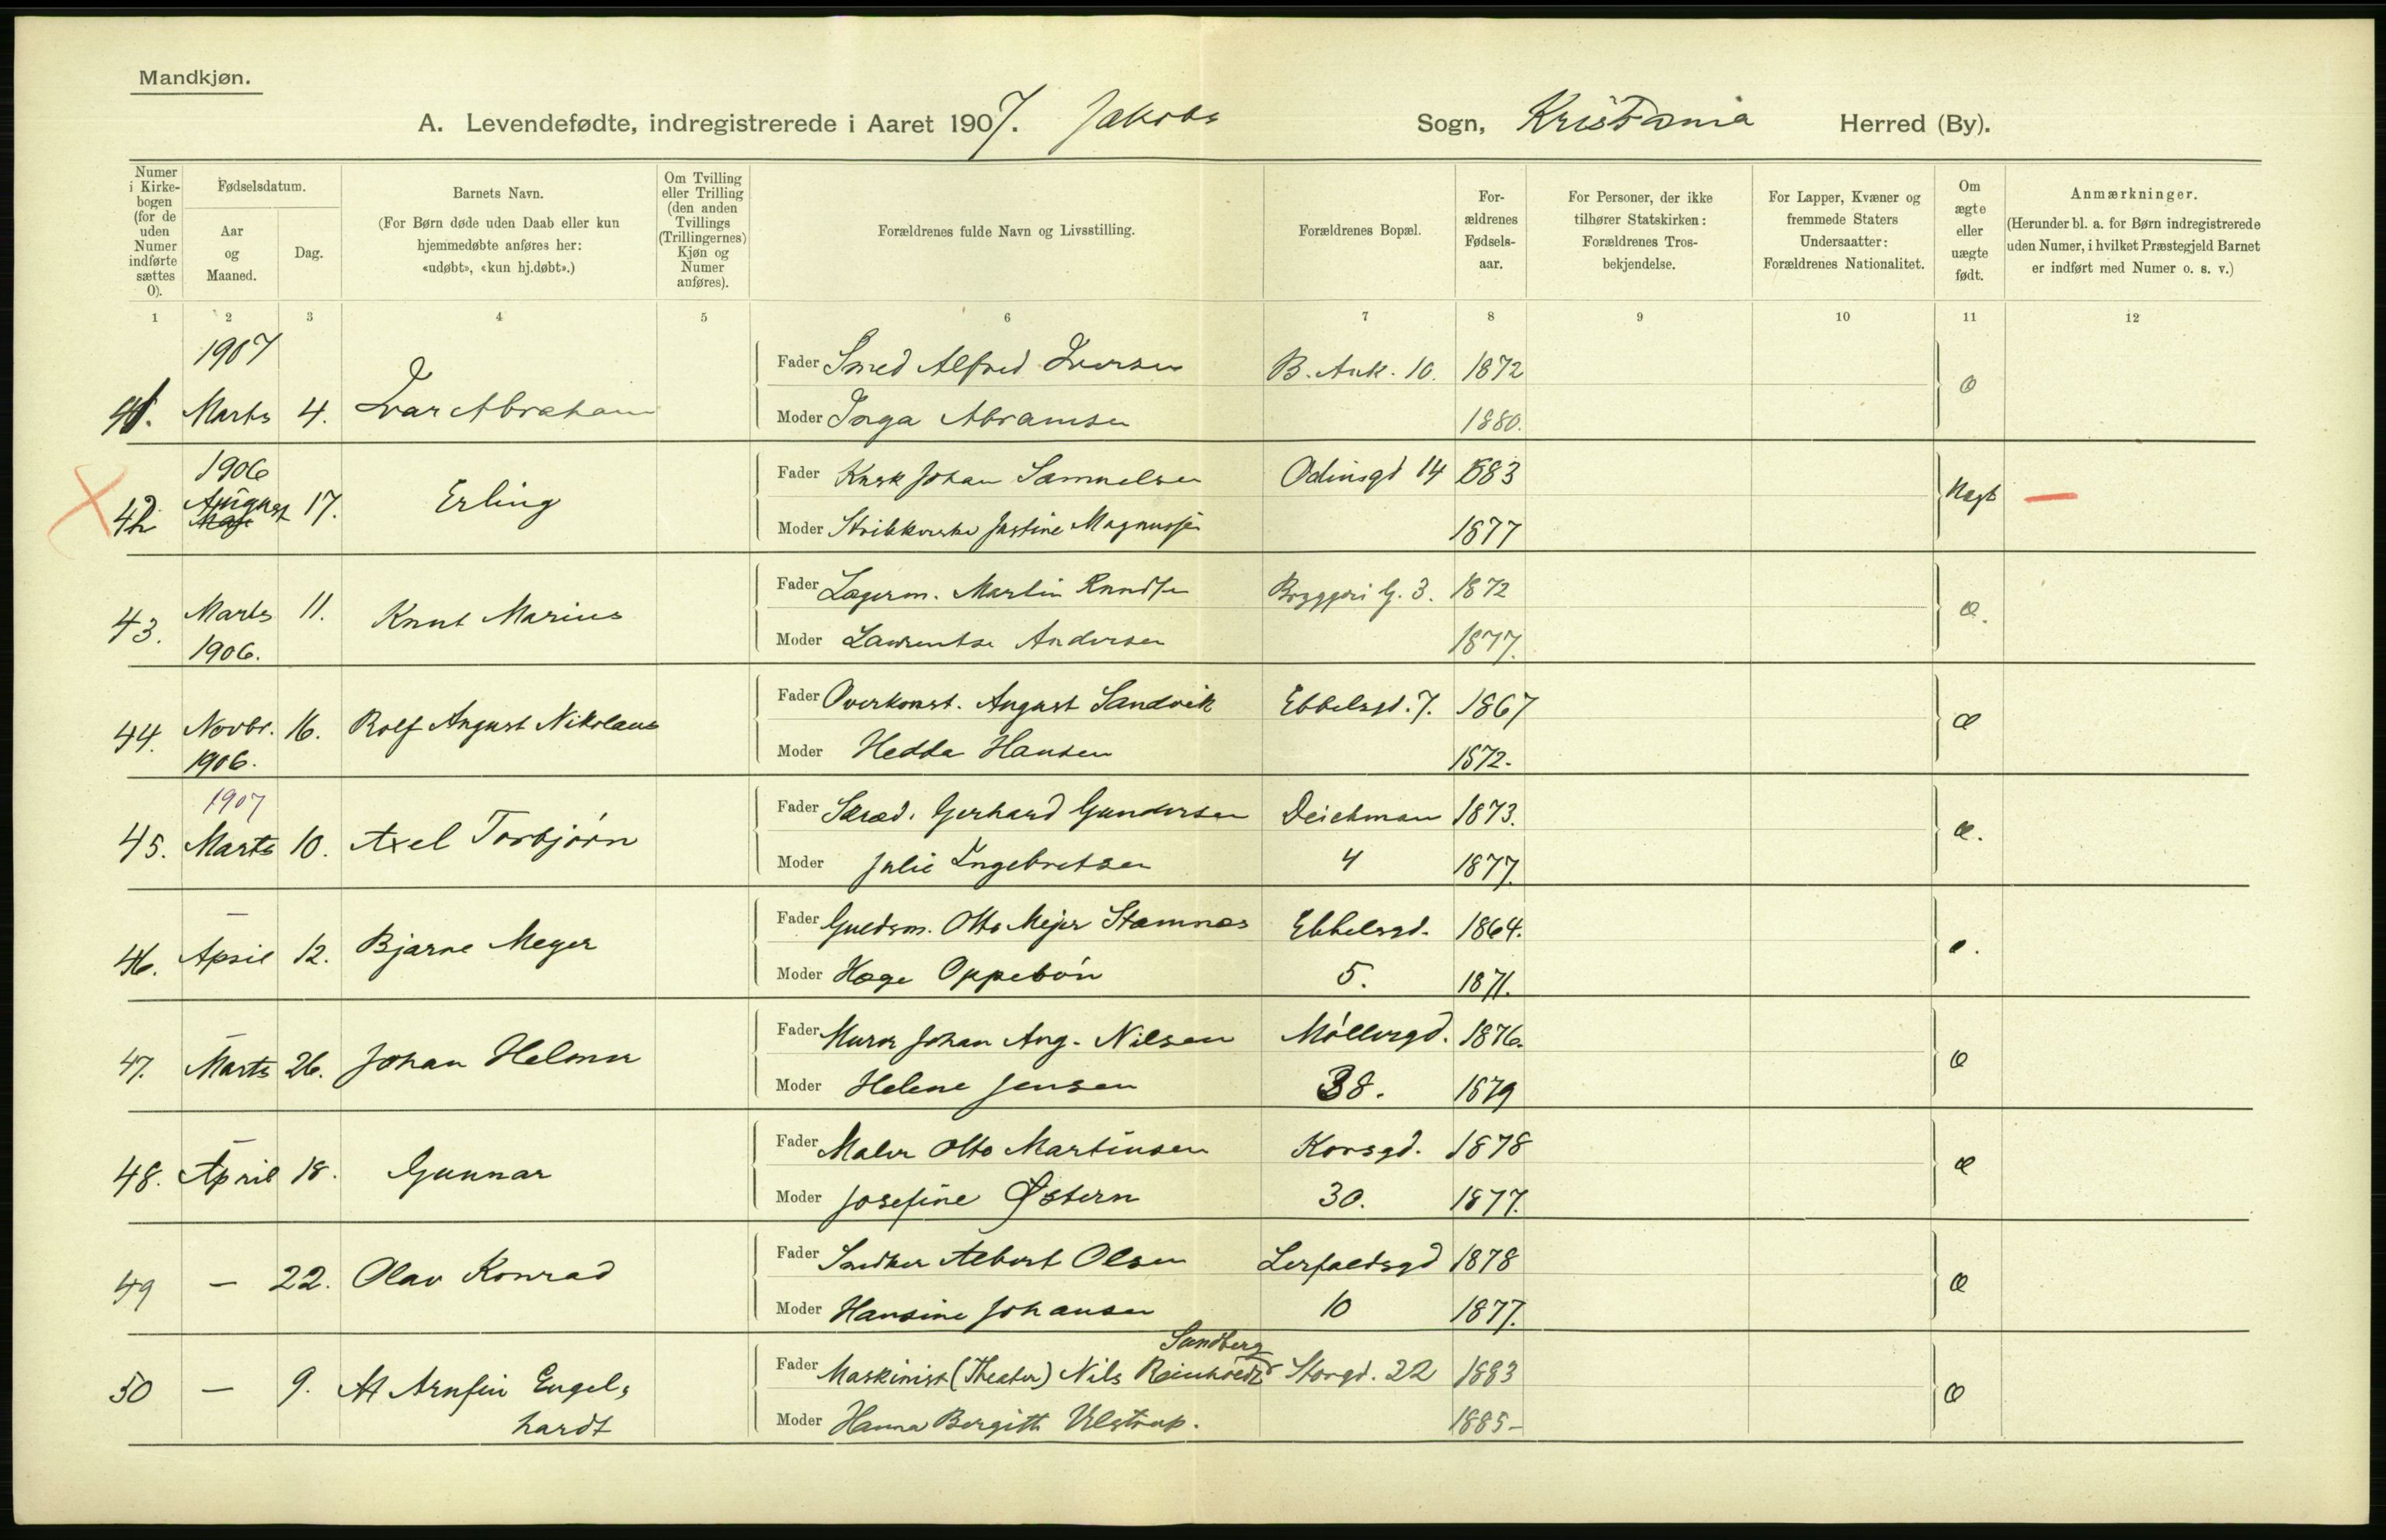 Mandkjøn.
A. Levendefødte, indregistrerede i Aaret 1907. Jakobs Sogn, Kristiania Herred (By).
Numer i Kirkebogen (for de uden Numer indførte sættes 0).
Fødselsdatum.
Aar og Maaned.
Dag.
Barnets Navn.
(For Børn døde uden Daab eller kun hjemmedøbte anføres her: «udøbt», «kun hj.døbt».)
Om Tvilling eller Trilling (den anden Tvillings (Trillingernes) Kjøn og Numer anføres).
Forældrenes fulde Navn og Livsstilling.
Forældrenes Bopæl.
Forældrenes Fødselsaar.
For Personer, der ikke tilhører Statskirken: Forældrenes Trosbekjendelse.
For Lapper, Kvæner og fremmede Staters Undersaatter: Forældrenes Nationalitet.
Om ægte eller uægte født.
Anmærkninger.
(Herunder bl. a. for Børn indregistrerede uden Numer, i hvilket Præstegjeld Barnet er indført med Numer o. s. v.)
1 2 3 4 5 6 7 8 9 10 11 12
1907
Fader Smed Alfred Iversen B. Ank. 10. 1872
41. Marts 4. Ivar Abraham
Moder Inga Abramsen 1880.
1906
Fader Kusk Johan Samuelsen Odinsgd 14 1883
42 August 17. Erling Uægt —
Moder Justine Magnussen 1877
Fader Lagerm. Martin Knudsen Bryggeri G. 3. 1872
43. Marts 11. Knut Marius Æ.
1906.
Moder Laurentse Andersen 1877.
Fader Overkonst. August Sandvik Ebbelsgd. 7. 1867
44. Novbr. 16. Rolf August Nikolaus Æ
1906.
Moder Hedda Hansen 1872.
1907
Fader Gerhard Gundersen Deichman 1873.
45. Marts 10. Axel Torbjörn Æ.
Moder Julie Ingebretsen 4 1877.
Fader Guldsm. Otto Mejer Stamnæs Ebbelsgd. 1864.
46. April 12. Bjarne Meyer
Moder Hæge Oppebön 5. 1871.
Fader Murer Johan Aug. Nilsen Möllergd. 1876.
47. Marts 26. Johan Helmer Æ
Moder Helene Jensen 38. 1879
Fader Maler Otto Martinsen Korsgd. 1878
48. April 18. Gunnar Æ
Moder Josefine Østern 30. 1877.
Fader Snedker Albert Olsen Lerfaldsgd 1878
49 — 22. Olav Konrad Æ
Moder Hansine Johansen 10 1877.
Sundberg
Fader Maskinist (Theater) Nils Reinholdt Storgd. 22 1883
50 — 9. Alf Arnfin Engel- Æ
hardt
Moder Hanna Bergitte Ulstrup. 1885-